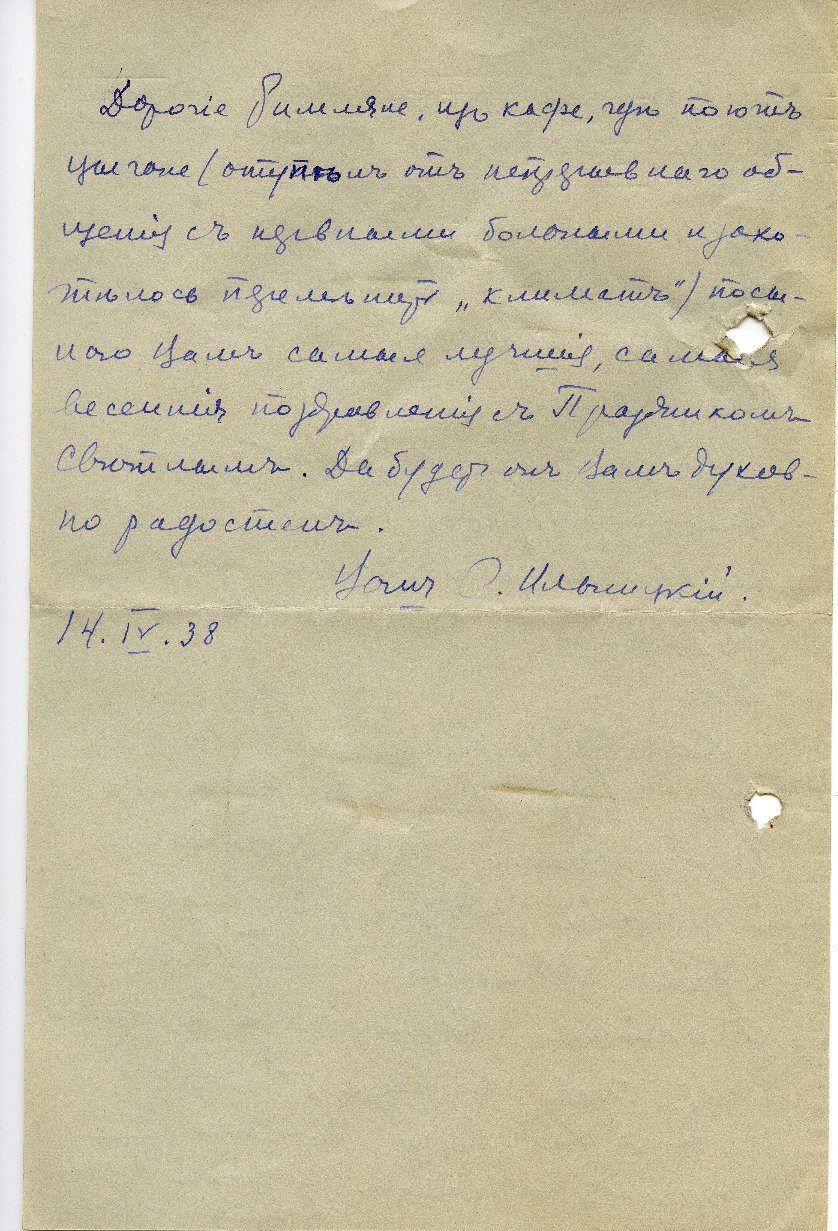 Дорогіе Римляне, изъ кафе, гдѣ поютъ
цыгане (отупѣлъ отъ непрерывнаго об-
щенія съ нервными больными и захо-
тѣлось перемѣнить „климатъ“) посы-
лаю Вамъ самыя лучшія, самыя
весеннія поздравленія съ Праздникомъ
Свѣтлымъ. Да будетъ онъ Вамъ духов-
но радостенъ.
Вашъ С. Ильницкій.
14.IV.38